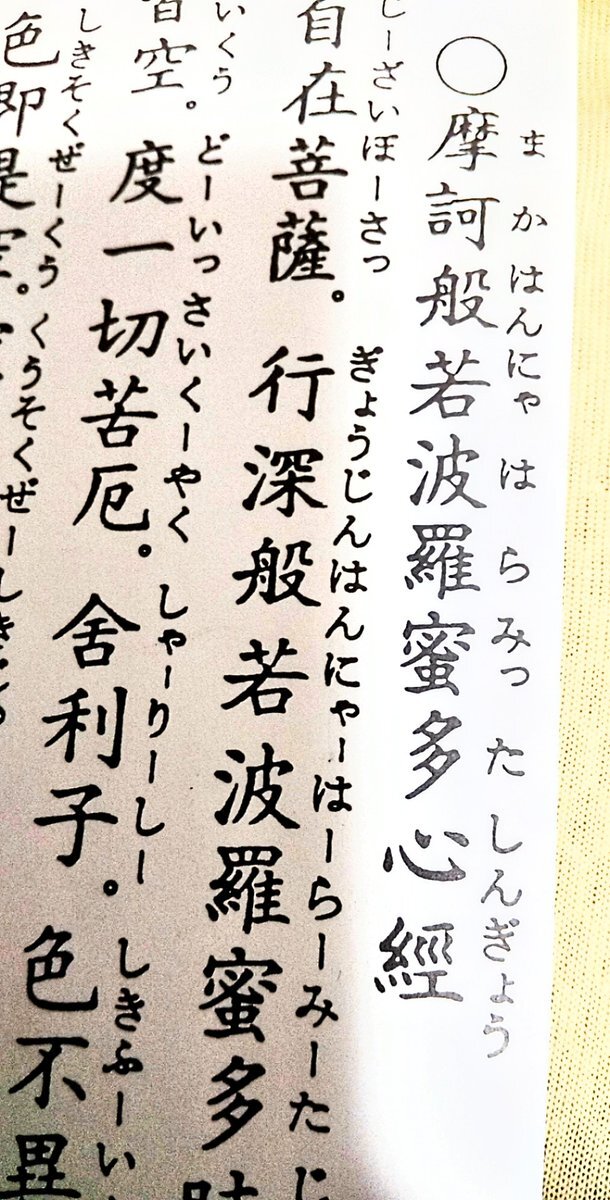 まかはんにゃはらみったしんぎょう
○摩訶般若波羅蜜多心經
じーざいほーさっ ぎょうじんはんにゃーはーらーみーたじ
自在菩薩。行深般若波羅蜜多
いくう どーいっさいくーやく しゃーりーしー しきふーい
空。度一切苦厄。舍利子。色不異
しきそくぜーくう くうそくぜーしき
色即是空。